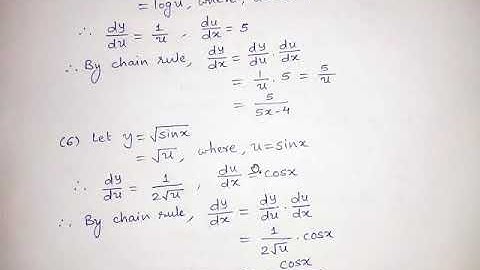 = log u, where, u
∴ dy/du = 1/u , du/dx = 5
∴ By chain rule, dy/dx = dy/du · du/dx
= 1/u · 5 = 5/u
= 5/5x-4
(6) Let y = √sinx
= √u, where, u = sinx
∴ dy/du = 1/2√u , du/dx = cosx
∴ By chain rule, dy/dx = dy/du · du/dx
= 1/2√u · cosx
cosx